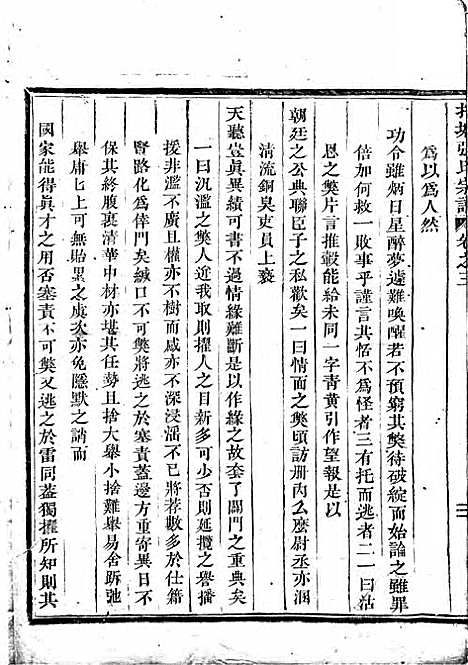 張氏宗譜 卷之三
為以為人然
功令雖炳日星醉夢遽難喚醒若不預窮其獘待破綻而始論之雖罪
倍加何救一敗事乎謹言其恬不為怪者三有托而逃者二一曰沽
恩之獘片言推轂能給未同一字青黃引作望報是以
朝廷之公典聯臣子之私歡矣一曰情面之獘頃訪册內么麼尉丞亦溷
清流銅臭吏員上褻
天聽豈眞異績可書不過情緣難斷是以作緣之故套了闢門之重典矣
一曰沉濫之獘人近我取則擢人之目新多可少否則延攬之譽播
援非濫不廣且權亦不樹而威亦不深浸滛不已將荐數多於仕籍
賢路化為倖門矣緘口不可獘將逃之於塞責蓋邊方重寄異日不
保其終腹裏清華中材亦堪其任勢且捨大舉小捨難舉易舍跅弛
舉庸匕上可無貽累之虞次亦免隱默之誚而
國家能得眞才之用否塞責不可獘又逃之於雷同蓋獨擢所知則其